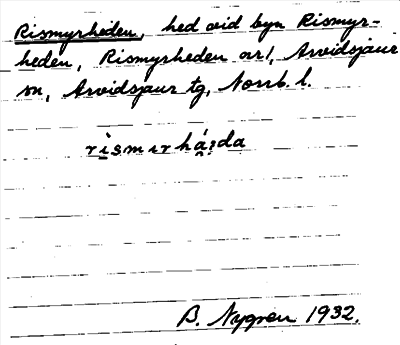 Rismyrheden, hed vid byn Rismyr-
heden, Rismyrheden arl, Arvidsjaur
sn, Arvidsjaur tg, Norrb. l.
B. Nygren 1932.